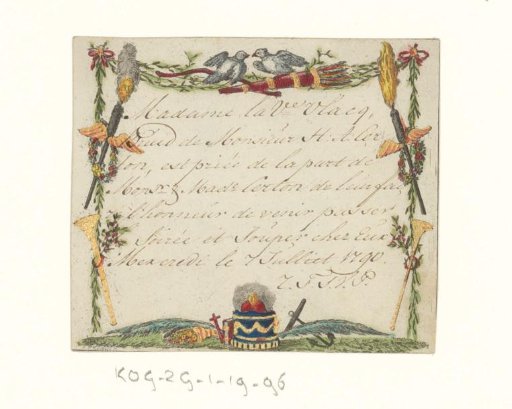 Madame la Vve Vlacq,
de Monsieur H. A.
ton, est priée de la part de
Monsr & Made Lerton de leur fai
l'honneur de venir passer
Soirée et Souper chez Eux
Mercredi le 7 Juillet 1790.
KOG-ZG-1-19-96